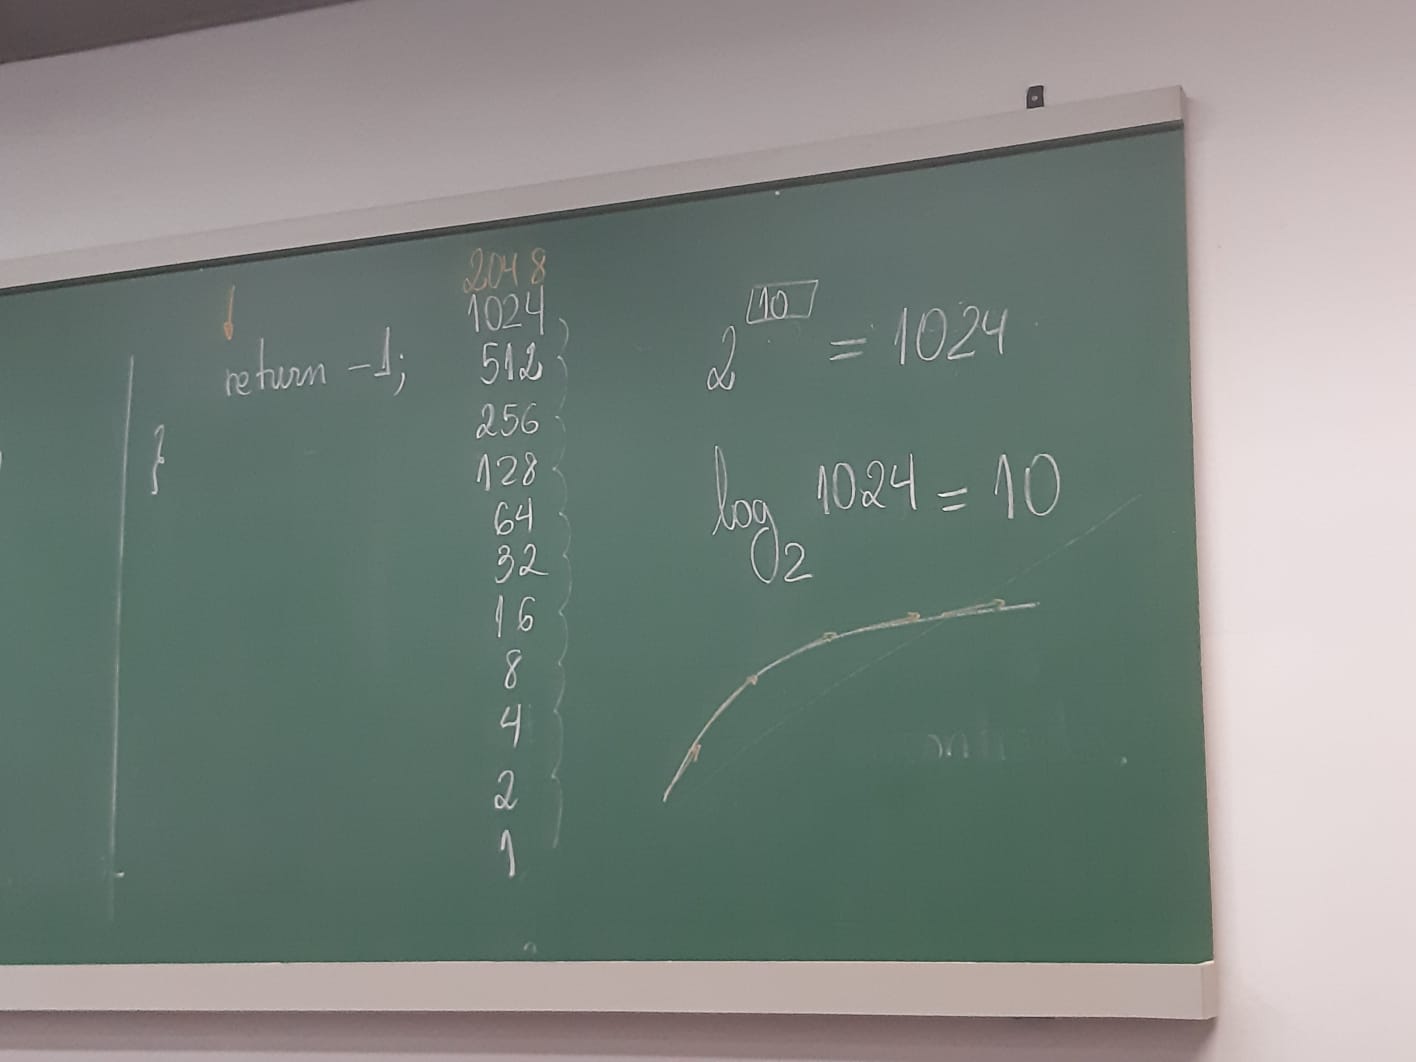 return -1;
}
2048
1024
512
256
128
64
32
16
8
4
2
1
2^10 = 1024
log₂ 1024 = 10